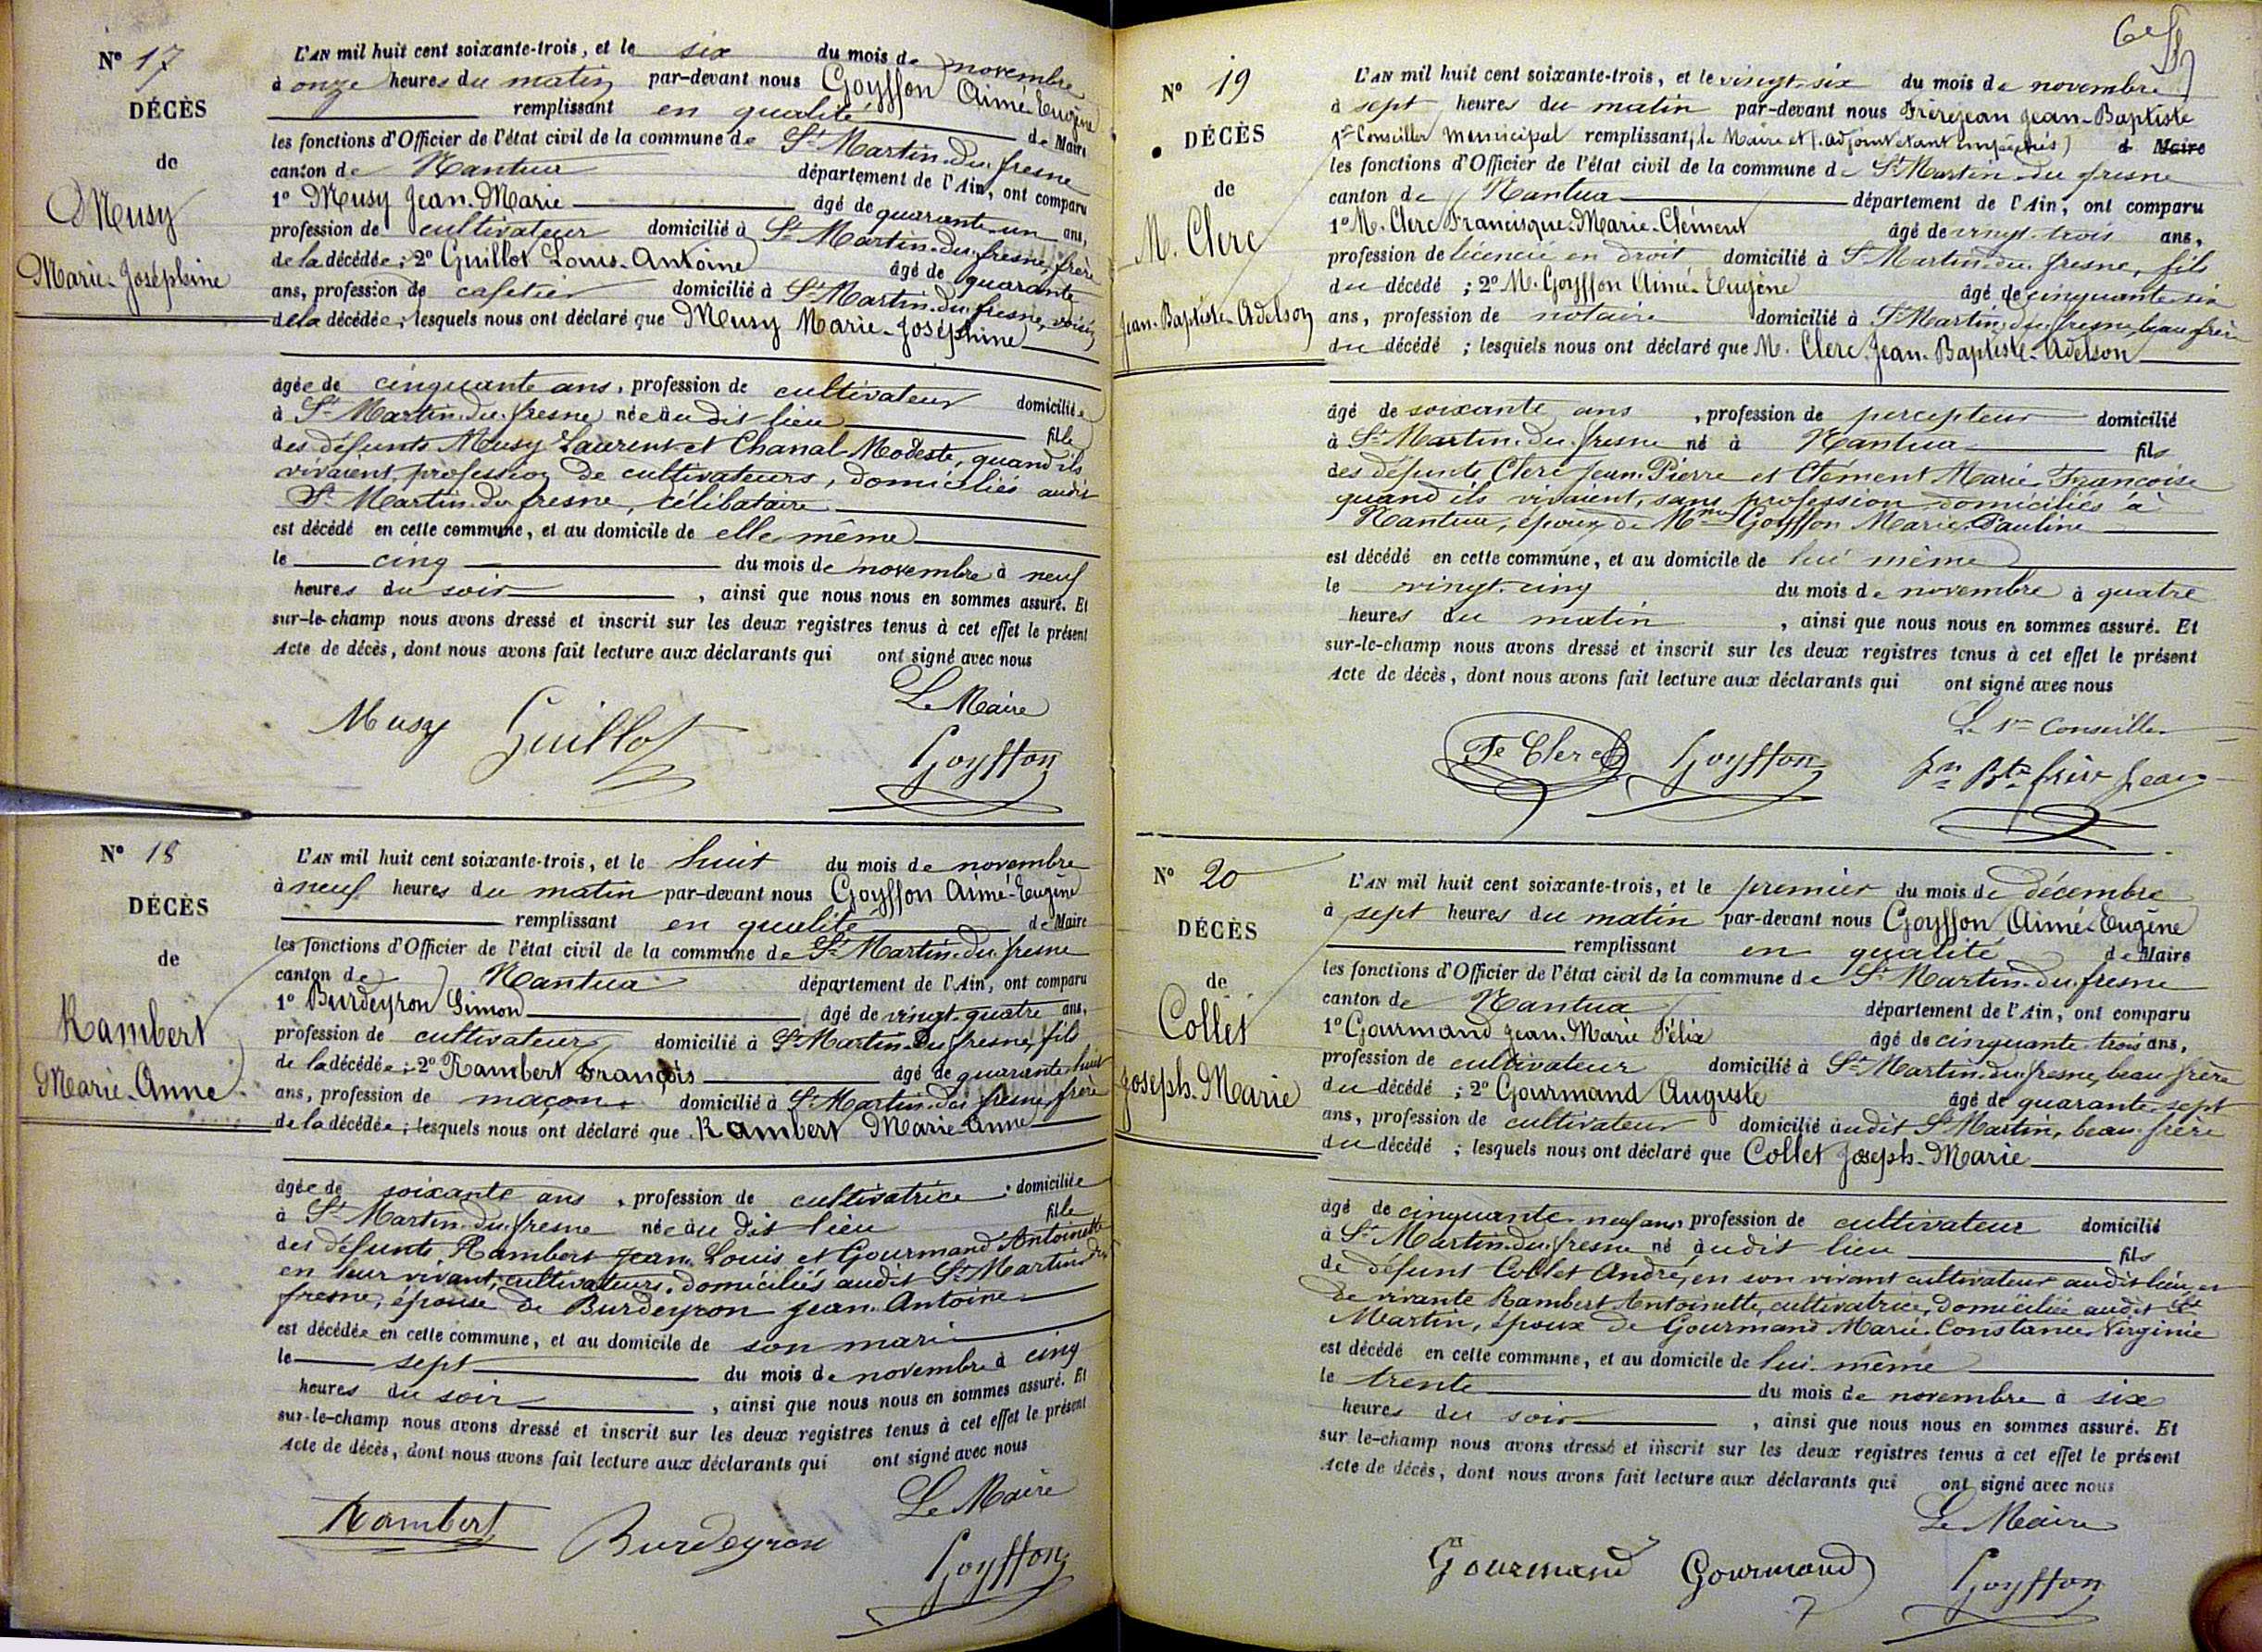 N° 17
DÉCÈS
de
Musy
Marie-Joséphine
L'AN mil huit cent soixante-trois, et le six du mois de novembre
à onze heures du matin par-devant nous Goyffon Aimé-Eugène
remplissant en qualité de Maire
les fonctions d'Officier de l'état civil de la commune de St Martin-du-fresne
canton de Nantua département de l'Ain, ont comparu
1° Musy Jean-Marie âgé de quarante-un ans,
profession de cultivateur domicilié à St Martin-du-fresne, frère
de la décédée ; 2° Guillot Louis-Antoine âgé de quarante
ans, profession de cafetier domicilié à St Martin-du-fresne, voisin
de la décédée ; lesquels nous ont déclaré que Musy Marie-Joséphine
âgée de cinquante ans, profession de cultivateur domiciliée
à St Martin-du-fresne née audit lieu fille
des défunts Musy Laurent et Chanal Modeste, quand ils
vivaient, profession de cultivateurs, domiciliés audit
St Martin-du-fresne, célibataire
est décédé en cette commune, et au domicile de elle même
le cinq du mois de novembre à neuf
heures du soir, ainsi que nous nous en sommes assuré. Et
sur-le-champ nous avons dressé et inscrit sur les deux registres tenus à cet effet le présent
Acte de décès, dont nous avons fait lecture aux déclarants qui ont signé avec nous
Le Maire
Musy Guillot Goyffon
N° 18
DÉCÈS
de
Rambert
Marie-Anne
L'AN mil huit cent soixante-trois, et le huit du mois de novembre
à neuf heures du matin par-devant nous Goyffon Aimé-Eugène
remplissant en qualité de Maire
les fonctions d'Officier de l'état civil de la commune de St Martin-du-fresne
canton de Nantua département de l'Ain, ont comparu
1° Burdeyron Simon âgé de vingt-quatre ans,
profession de cultivateur domicilié à St Martin-du-fresne, fils
de la décédée ; 2° Rambert François âgé de quarante huit
ans, profession de maçon domicilié à St Martin-du-fresne, frère
de la décédée ; lesquels nous ont déclaré que Rambert Marie-Anne
âgée de soixante ans, profession de cultivatrice domiciliée
à St Martin-du-fresne née au dit lieu fille
des défunts Rambert Jean-Louis et Gourmand Antoinette
en leur vivant, cultivateurs, domiciliés audit St Martin du
fresne, épouse de Burdeyron Jean-Antoine
est décédée en cette commune, et au domicile de son mari
le sept du mois de novembre à cinq
heures du soir, ainsi que nous nous en sommes assuré. Et
sur-le-champ nous avons dressé et inscrit sur les deux registres tenus à cet effet le présent
Acte de décès, dont nous avons fait lecture aux déclarants qui ont signé avec nous
Le Maire
Rambert Burdeyron Goyffon
N° 19
DÉCÈS
de
M. Clerc
Jean-Baptiste-Adelson
L'AN mil huit cent soixante-trois, et le vingt-six du mois de novembre
à sept heures du matin par-devant nous Frèrejean Jean-Baptiste
1er Conseiller Municipal remplissant, (le Maire et l'adjoint étant empêchés) d Maire
les fonctions d'Officier de l'état civil de la commune de St Martin-du-fresne
canton de Nantua département de l'Ain, ont comparu
1° M. Clerc Francisque-Marie-Clément âgé de vingt-trois ans,
profession de licencié en droit domicilié à St Martin-du-fresne, fils
du décédé ; 2° M. Goyffon Aimé-Eugène âgé de cinquante-six
ans, profession de notaire domicilié à St Martin-du-fresne, beau-frère
du décédé ; lesquels nous ont déclaré que M. Clerc Jean-Baptiste-Adelson
âgé de soixante ans, profession de percepteur domicilié
à St Martin-du-fresne né à Nantua fils
des défunts Clerc Jean-Pierre et Clément Marie-Françoise
quand ils vivaient, sans profession domiciliés à
Nantua, époux de Mme Goyffon Marie-Pauline
est décédé en cette commune, et au domicile de lui même
le vingt-cinq du mois de novembre à quatre
heures du matin, ainsi que nous nous en sommes assuré. Et
sur-le-champ nous avons dressé et inscrit sur les deux registres tenus à cet effet le présent
Acte de décès, dont nous avons fait lecture aux déclarants qui ont signé avec nous
Le 1er Conseiller
Fe Clerc Goyffon Jn Bte frère Jean
N° 20
DÉCÈS
de
Collet
Joseph-Marie
L'AN mil huit cent soixante-trois, et le premier du mois de décembre
à sept heures du matin par-devant nous Goyffon Aimé-Eugène
remplissant en qualité de Maire
les fonctions d'Officier de l'état civil de la commune de St Martin-du-fresne
canton de Nantua département de l'Ain, ont comparu
1° Gourmand Jean-Marie Félix âgé de cinquante-trois ans,
profession de cultivateur domicilié à St Martin-du-fresne, beau frère
du décédé ; 2° Gourmand Auguste âgé de quarante-sept
ans, profession de cultivateur domicilié audit St Martin, beau-frère
du décédé ; lesquels nous ont déclaré que Collet Joseph-Marie
âgé de cinquante-neuf ans, profession de cultivateur domicilié
à St Martin-du-fresne né audit lieu fils
de défunt Collet André, en son vivant cultivateur audit lieu, et
de vivante Rambert Antoinette, cultivatrice, domiciliée audit St
Martin, époux de Gourmand Marie-Constance-Virginie
est décédé en cette commune, et au domicile de lui-même
le trente du mois de novembre à six
heures du soir, ainsi que nous nous en sommes assuré. Et
sur-le-champ nous avons dressé et inscrit sur les deux registres tenus à cet effet le présent
Acte de décès, dont nous avons fait lecture aux déclarants qui ont signé avec nous
Le Maire
Gourmand Gourmand Goyffon